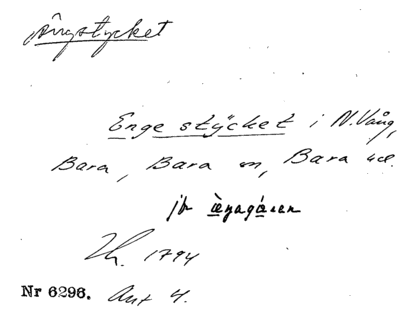 Ängstycket
Enge stÿcket i N. Vång,
Bara, Bara sn, Bara hd.
jfr
Th. 1794
Nr 6296. Akt 4.